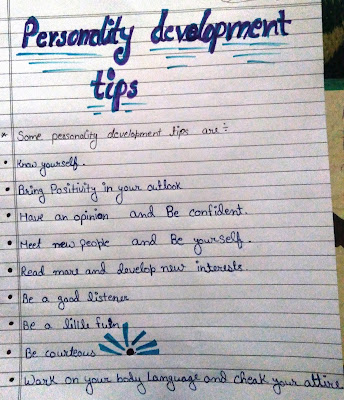 Personality development
tips
* Some personality development tips are ÷
• Know yourself.
• Bring Positivity in your outlook
• Have an opinion and Be confident.
• Meet new people and Be yourself.
• Read more and develop new interests.
• Be a good listener
• Be a little
• Be courteous
• Work on your body Language and cheak your attire